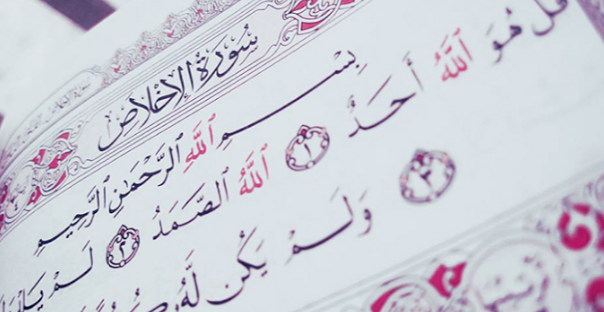 سُورَةُ الإِخْلَاصِ
بِسْمِ ٱللَّهِ ٱلرَّحْمَٰنِ ٱلرَّحِيمِ
قُلْ هُوَ ٱللَّهُ أَحَدٌ ١ ٱللَّهُ ٱلصَّمَدُ ٢ لَمْ
٣ وَلَمْ يَكُن لَّهُۥ